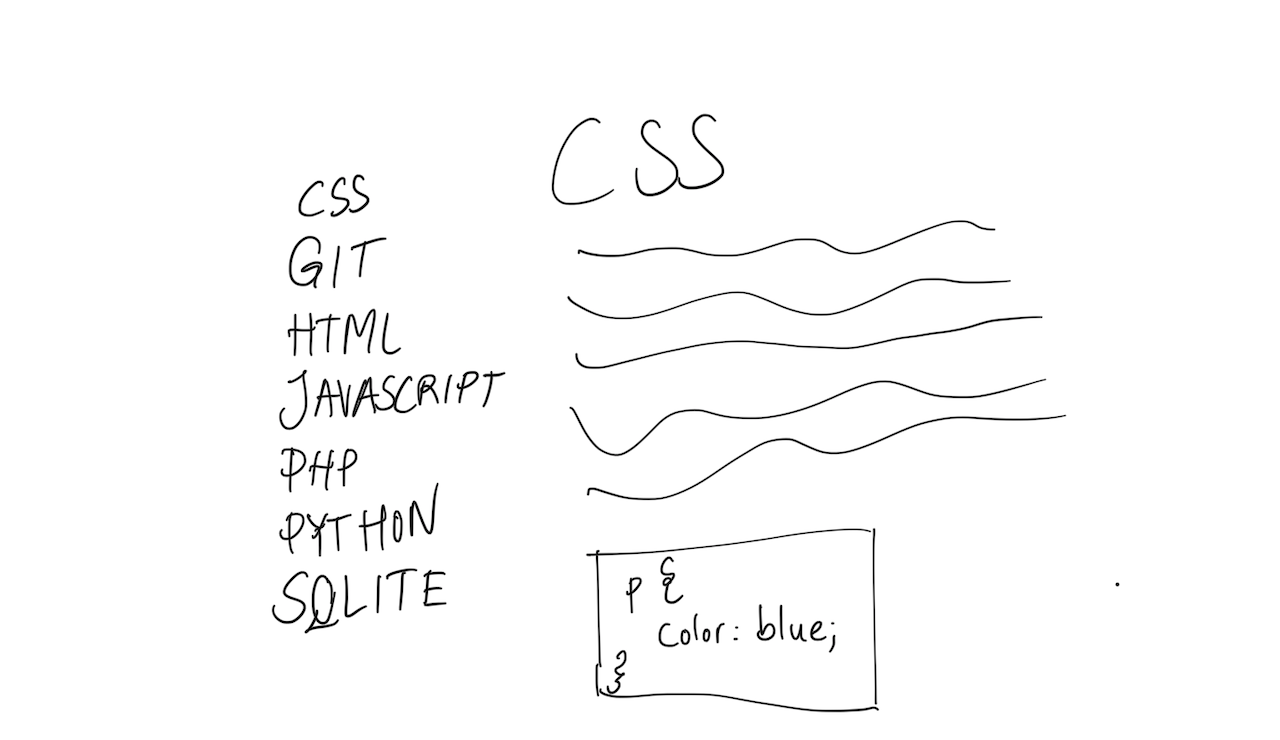 CSS
CSS
GIT
HTML
JAVASCRIPT
PHP
PYTHON
SQLITE
p {
color: blue;
}